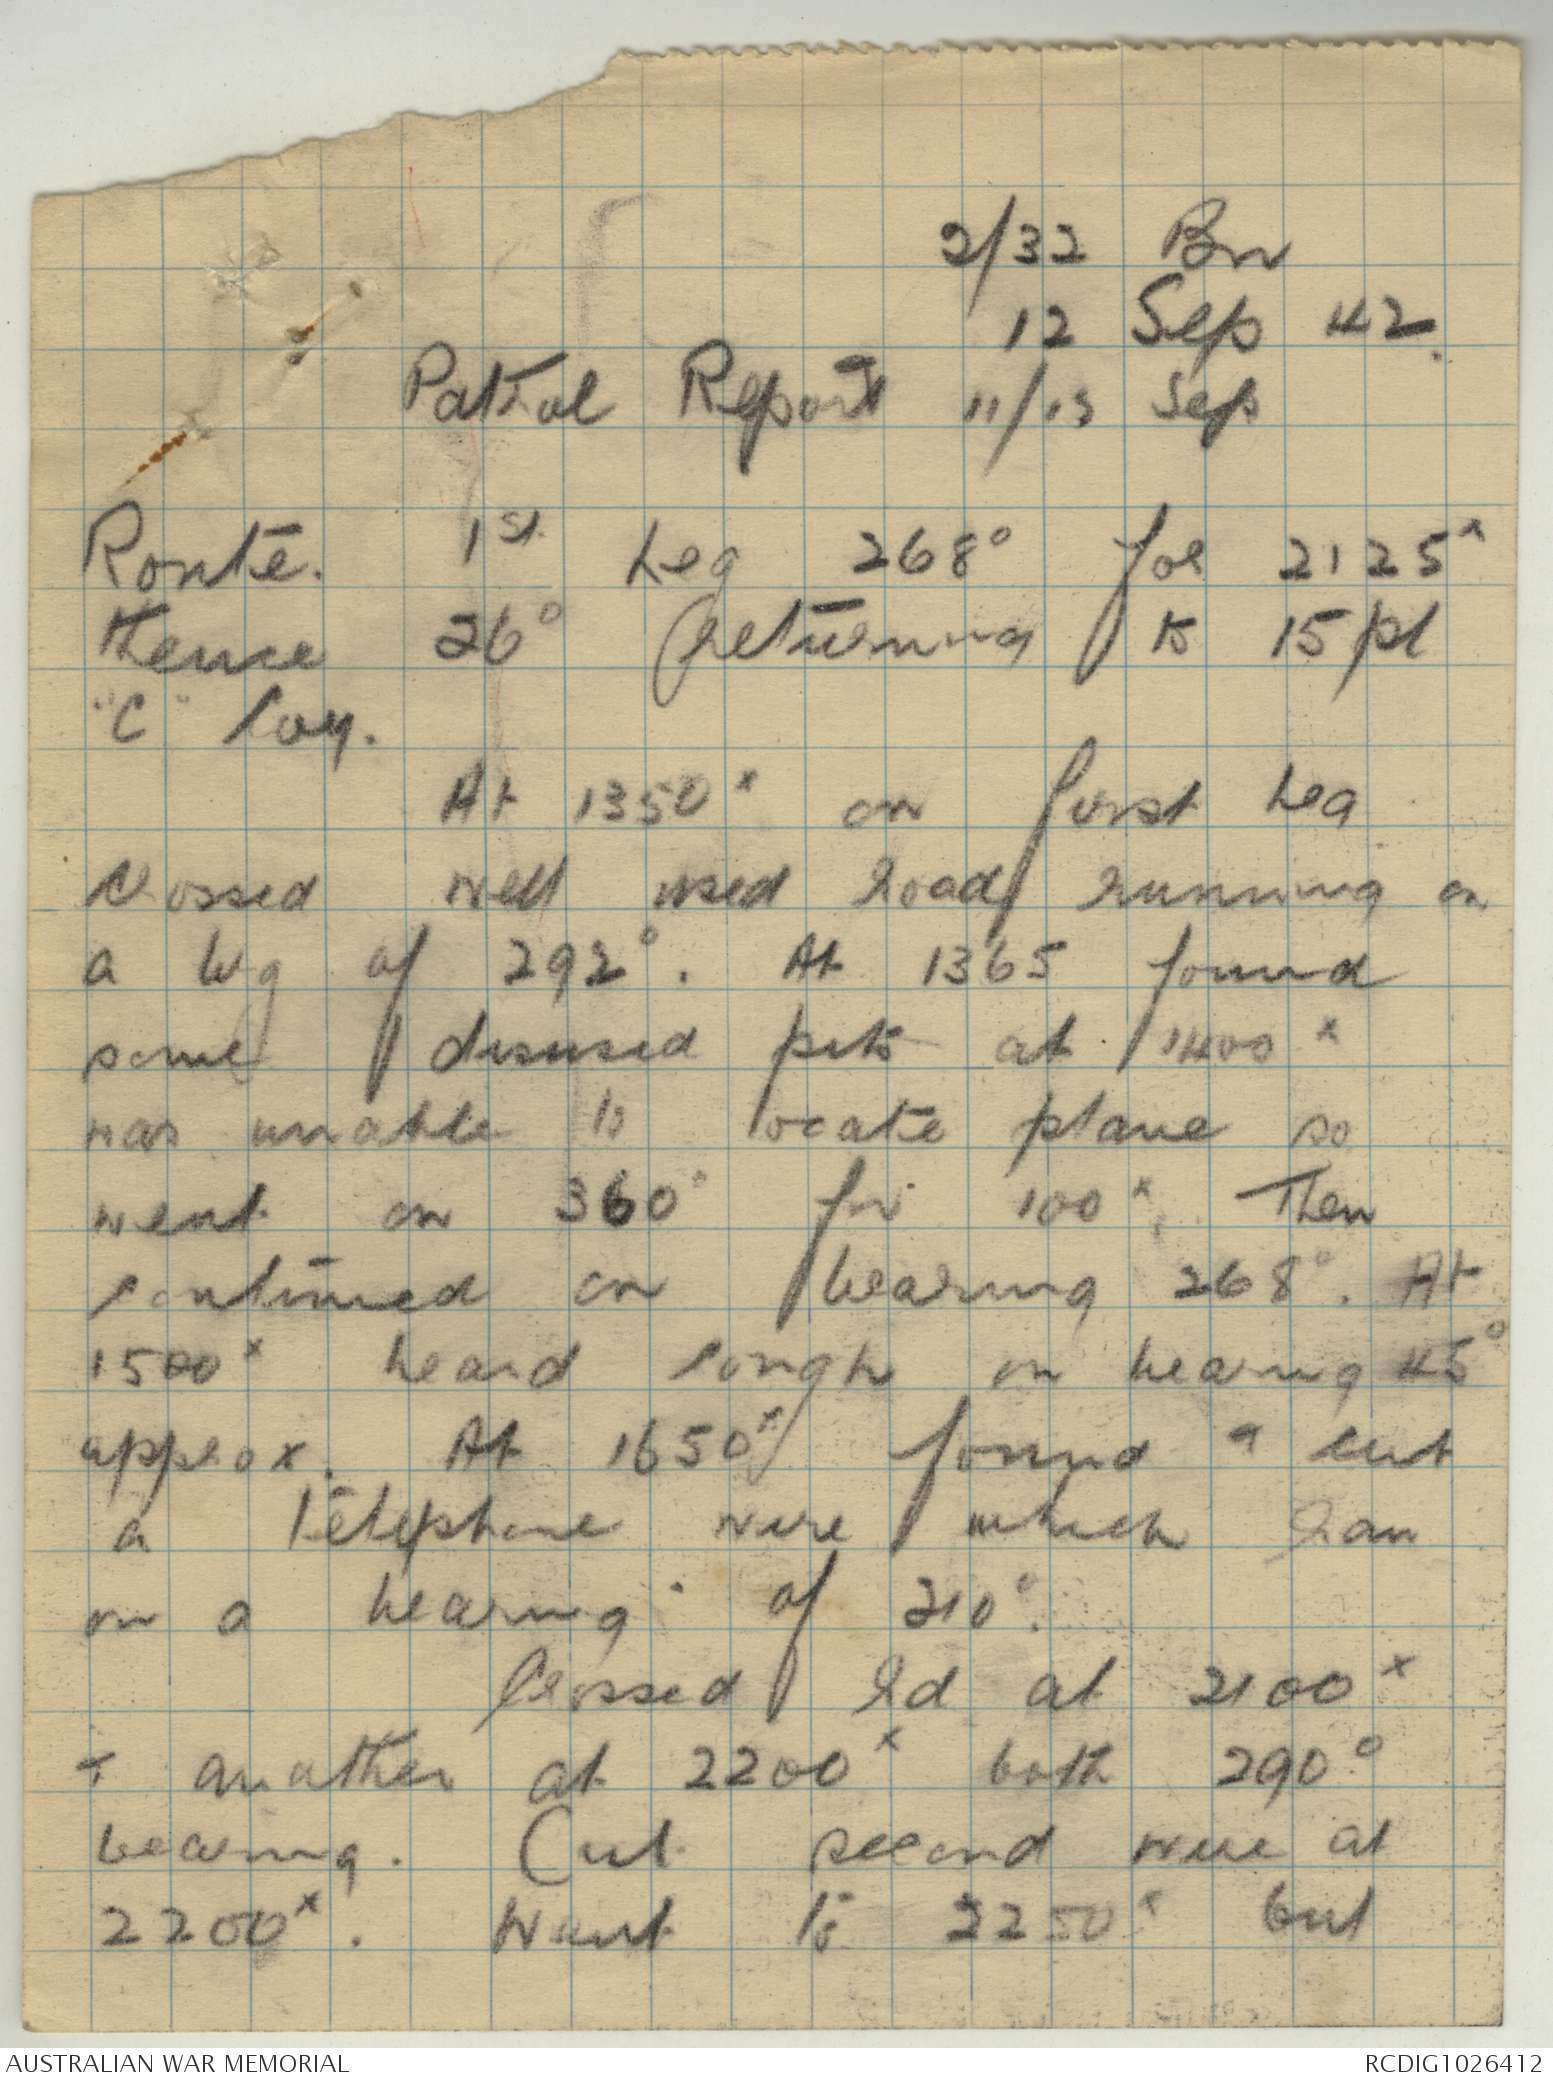 2/32 Bn
12 Sep 42.
Patrol Report 11/13 Sep
Route. 1st Leg 268° for 2125x
thence 26° returning to 15 pl
"C" Coy.
At 1350x on first leg
crossed well used road running on
a brg of 292°. At 1365 found
some disused pits at 1400x
was unable to locate plane so
went on 360° for 100x. Then
continued on bearing 268°. At
1500x heard cough on bearing 45°
approx. At 1650x found & cut
a telephone wire which ran
on a bearing of 210°.
Crossed rd at 2100x
+ another at 2200x both 290°
bearing. Cut second wire at
2200x. Went to 2250x but
AUSTRALIAN WAR MEMORIAL
RCDIG1026412